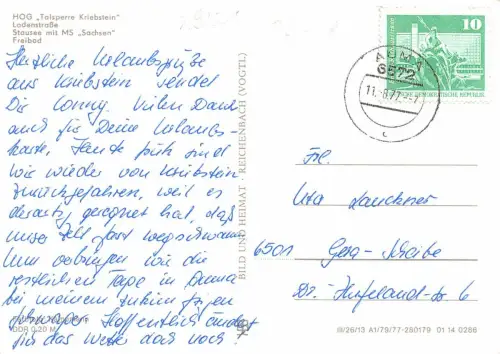 HOG „Talsperre Kriebstein"
Ladenstraße
Stausee mit MS „Sachsen"
Freibad
Herzliche Urlaubsgrüße
aus Kriebstein sendet
Dir Conny. Vielen Dank
auch für Deine Urlaubs-
karte. Heute früh sind
wir wieder von Kriebstein
zurückgefahren, weil es
derartig geregnet hat, daß
unser Zelt fast wegschwamm.
Nun verbringen wir die
restlichen Tage in Alma
bei meinem
Hoffentlich ändert
sich das Wetter doch noch
DDR 0,20 M
BILD UND HEIMAT · REICHENBACH (VOGTL)
10
DEUTSCHE DEMOKRATISCHE REPUBLIK
6572
11.-8.77.-7
c
Frl.
Uta
6501 Gera-Scheibe
Dr.-Hufeland-Str. 6
III/26/13 A1/79/77-280179 01 14 0286